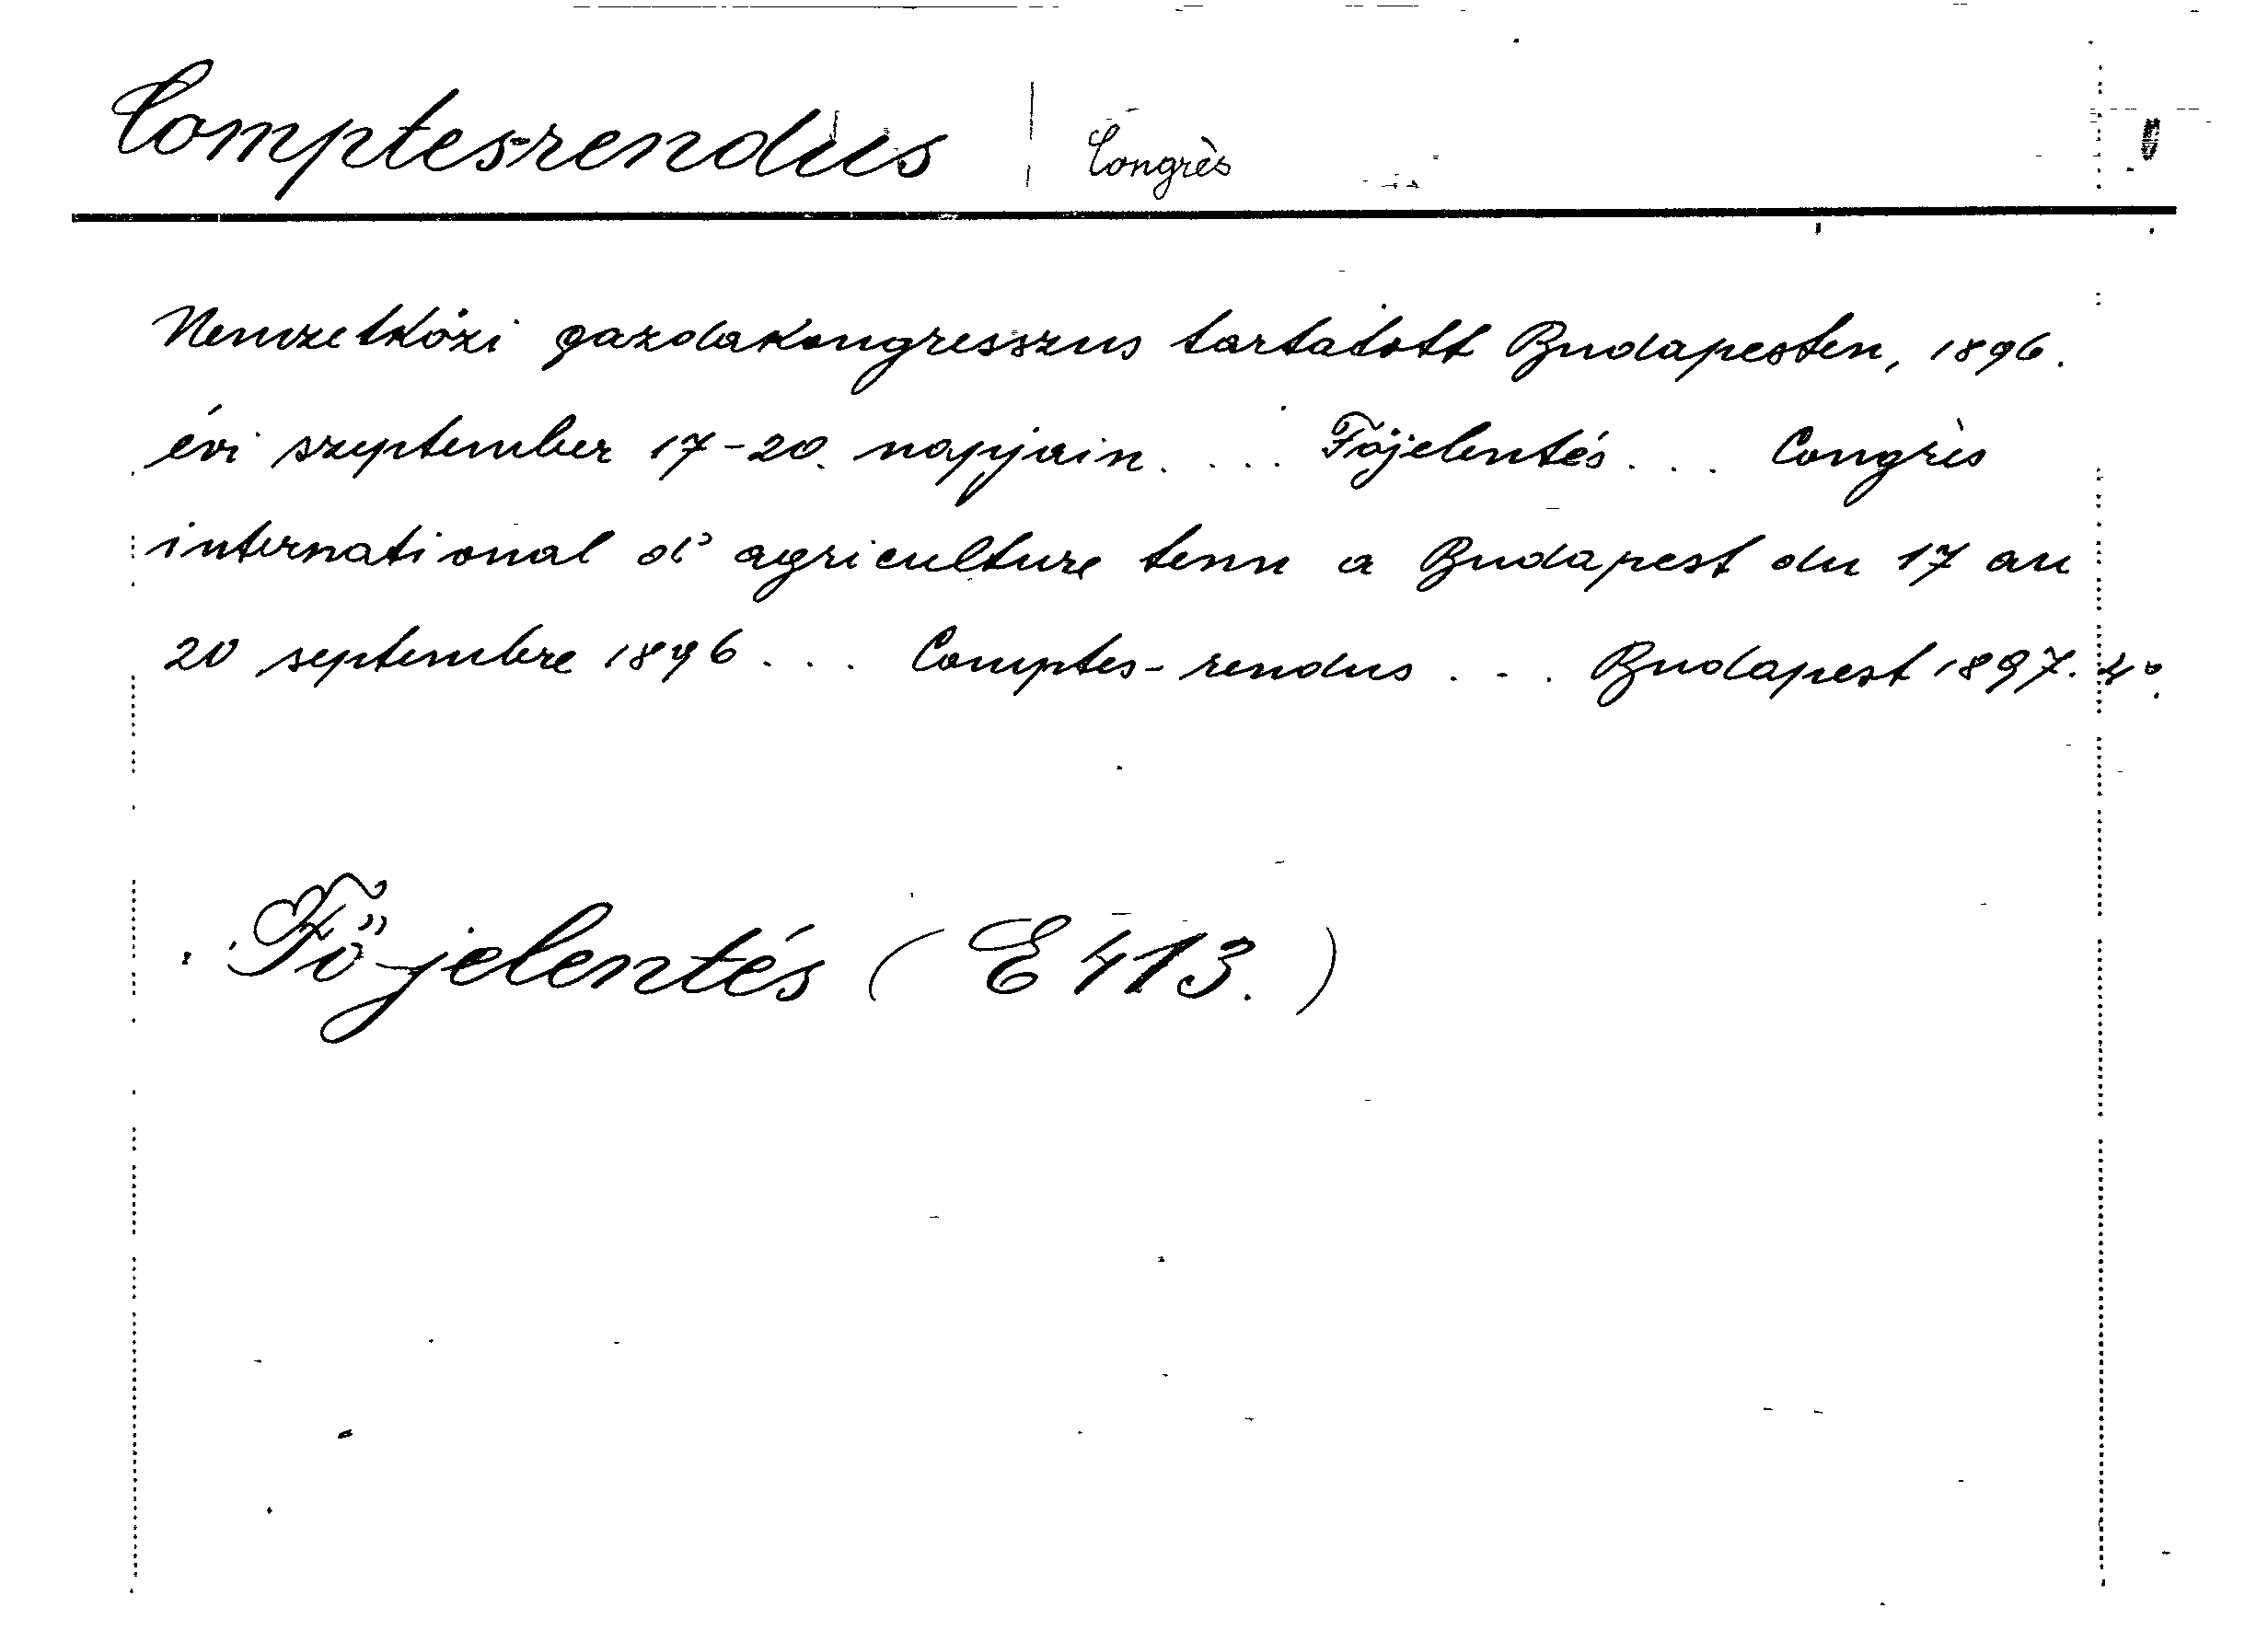 Comptes-rendus | Congrès
Nemzetközi gazdakongresszus tartatott Budapesten, 1896.
évi szeptember 17-20. napjain. ... Főjelentés... Congrès
international d'agriculture tenu a Budapest du 17 au
20 septembre 1896... Comptes-rendus... Budapest 1897. 4°.
Fő-jelentés (E 413.)